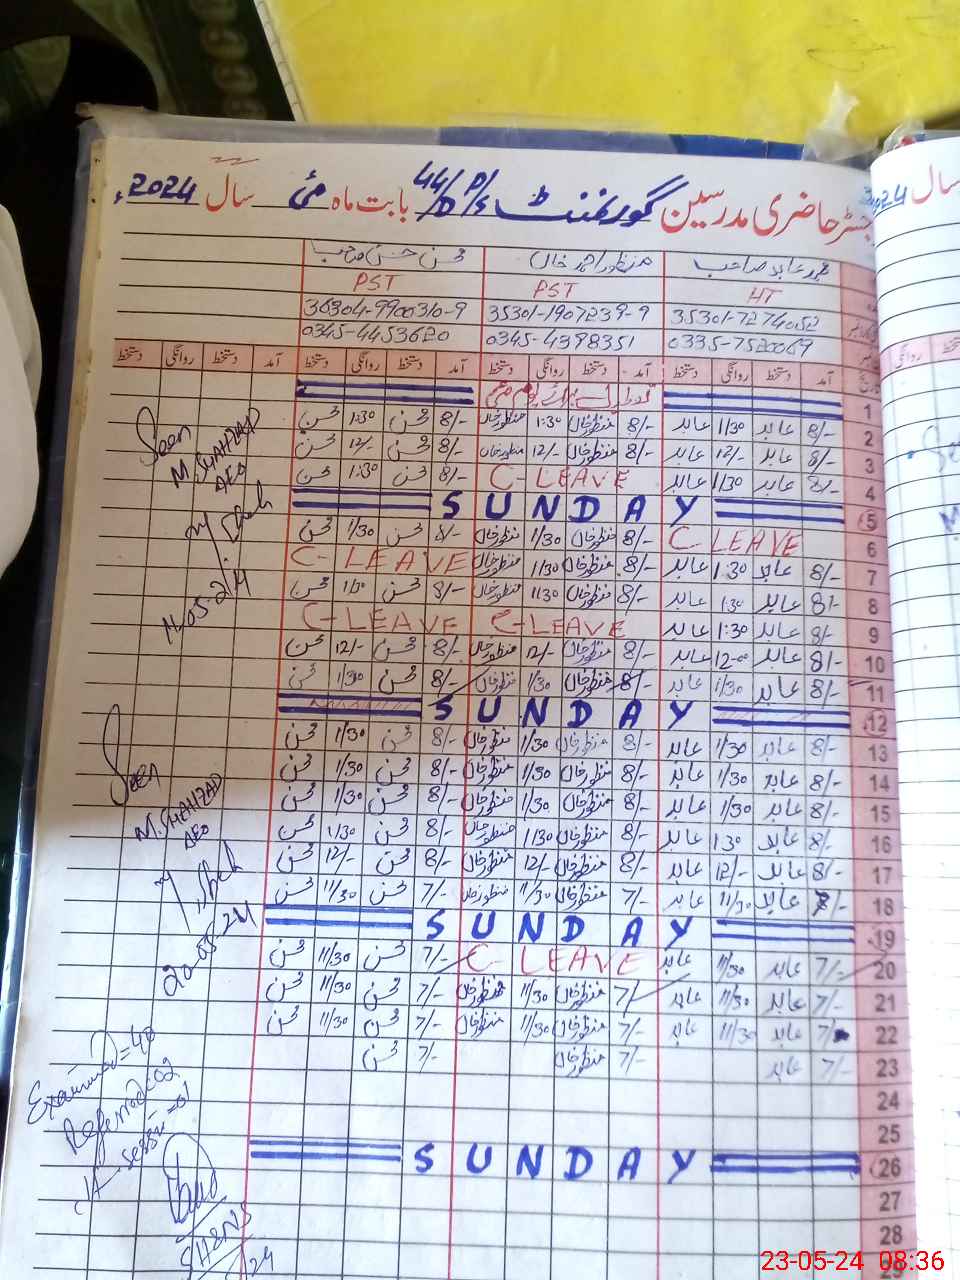 رجسٹر حاضری مدرسین گورنمنٹ P/S 44/D بابت ماہ مئی سال 2024ء
عابد صاحب منظور احمد خان محسن حسن صاحب
HT PST PST
35301-7274052 35301-1907239-9 36304-9900310-9
0335-7520069 0345-4398351 0345-4453620
آمد دستخط روانگی دستخط آمد دستخط روانگی دستخط آمد دستخط روانگی دستخط آمد دستخط روانگی دستخط
1
2 8/- عابد 1/30 عابد 8/- منظور خان 1:30 منظور خان 8/- محسن 1:30 محسن
3 8/- عابد 12/- عابد 8/- منظور خان 12/- منظور خان 8/- محسن 12/- محسن
4 8/- عابد 1/30 عابد C-LEAVE 8/- محسن 1:30 محسن
5 SUNDAY
6 C-LEAVE 8/- منظور خان 1/30 منظور خان 8/- محسن 1/30 محسن
7 8/- عابد 1:30 عابد 8/- منظور خان 1/30 منظور خان C-LEAVE
8 8/- عابد 1:30 عابد 8/- منظور خان 1130 منظور خان 8/- محسن 1/30 محسن
9 8/- عابد 1:30 عابد C-LEAVE C-LEAVE
10 8/- عابد 12-00 عابد 8/- منظور خان 12/- منظور خان 8/- محسن 12/- محسن
11 8/- عابد 1/30 عابد 8/- منظور خان 1/30 منظور خان 8/- محسن 1/30 محسن
12 SUNDAY
13 8/- عابد 1/30 عابد 8/- منظور خان 1/30 منظور خان 8/- محسن 1/30 محسن
14 8/- عابد 1/30 عابد 8/- منظور خان 1/30 منظور خان 8/- محسن 1/30 محسن
15 8/- عابد 1/30 عابد 8/- منظور خان 1/30 منظور خان 8/- محسن 1/30 محسن
16 8/- عابد 1 30 عابد 8/- منظور خان 1130 منظور خان 8/- محسن 1/30 محسن
17 8/- عابد 12/- عابد 8/- منظور خان 12/- منظور خان 8/- محسن 12/- محسن
18 7/- عابد 11/30 عابد 7/- منظور خان 11/30 منظور خان 7/- محسن 11/30 محسن
19 SUNDAY
20 7/- عابد 11/30 عابد C-LEAVE 7/- محسن 11/30 محسن
21 7/- عابد 11/30 عابد 7/- منظور خان 11/30 منظور خان 7/- محسن 11/30 محسن
22 7/- عابد 11/30 عابد 7/- منظور خان 11/30 منظور خان 7/- محسن 11/30 محسن
23 7/- عابد 7/- منظور خان 7/- محسن
24
25
26 SUNDAY
27
28
29
Seen
M. SHAHZAD
AEO
11-05-24
Seen
M. SHAHZAD
AEO
20-05-24
Examined=40
Referred=02
H-session=01
SH&NS
سال 2024
23-05-24 08:36